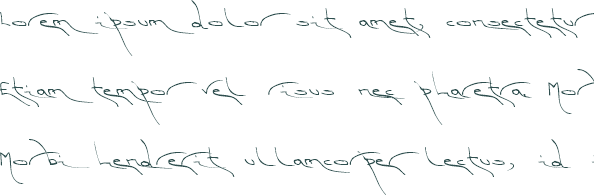 Lorem ipsum dolor sit amet, consectetur
Etiam tempor vel risus nec pharetra. Mor
Morbi hendrerit ullamcorper lectus, id